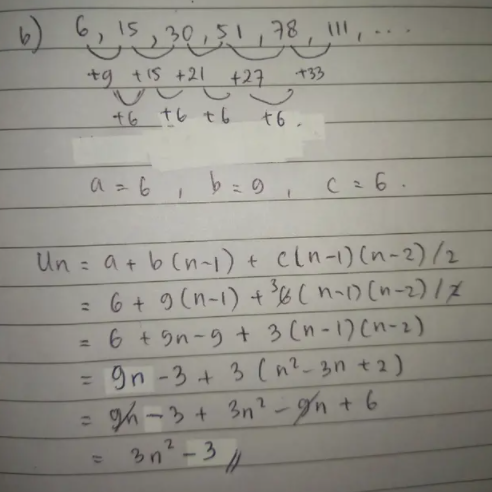 b) 6, 15, 30, 51, 78, 111, ...
+9 +15 +21 +27 +33
+6 +6 +6 +6.
a = 6 , b = 9 , c = 6.
Un = a + b(n-1) + c(n-1)(n-2)/2
= 6 + 9(n-1) + ³6(n-1)(n-2)/2
= 6 + 9n-9 + 3(n-1)(n-2)
= 9n - 3 + 3(n²-3n+2)
= 9n - 3 + 3n² - 9n + 6
= 3n² - 3 //